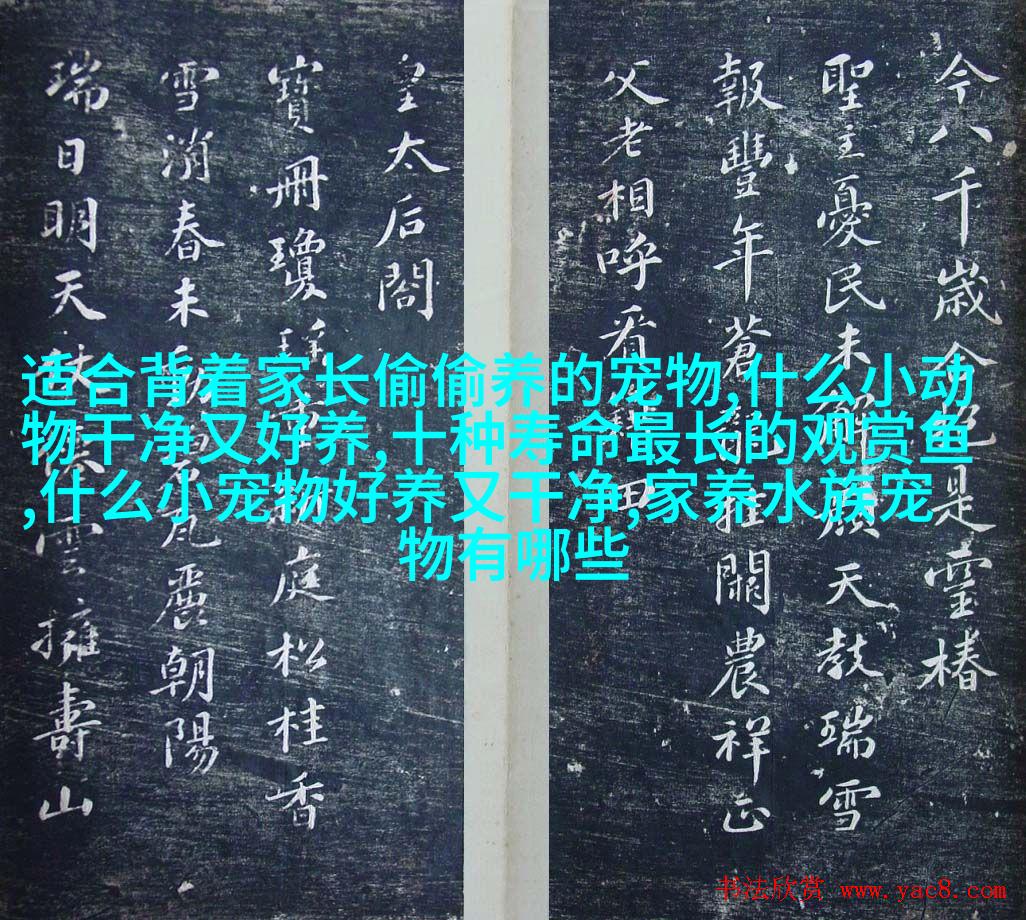 今八千歲是靈椿
聖主憂民未解顏天教瑞雪
報豐年蒼龍挂闕農祥正
父老相呼看田
皇太后閤
寶冊瓊庭松桂香
雪消春未瓦麗朝陽
瑞日明天雲擁壽山
适合背着家长偷偷养的宠物,什么小动
物干净又好养,十种寿命最长的观赏鱼
,什么小宠物好养又干净,家养水族宠
物有哪些
书法欣赏 www.yac8.com